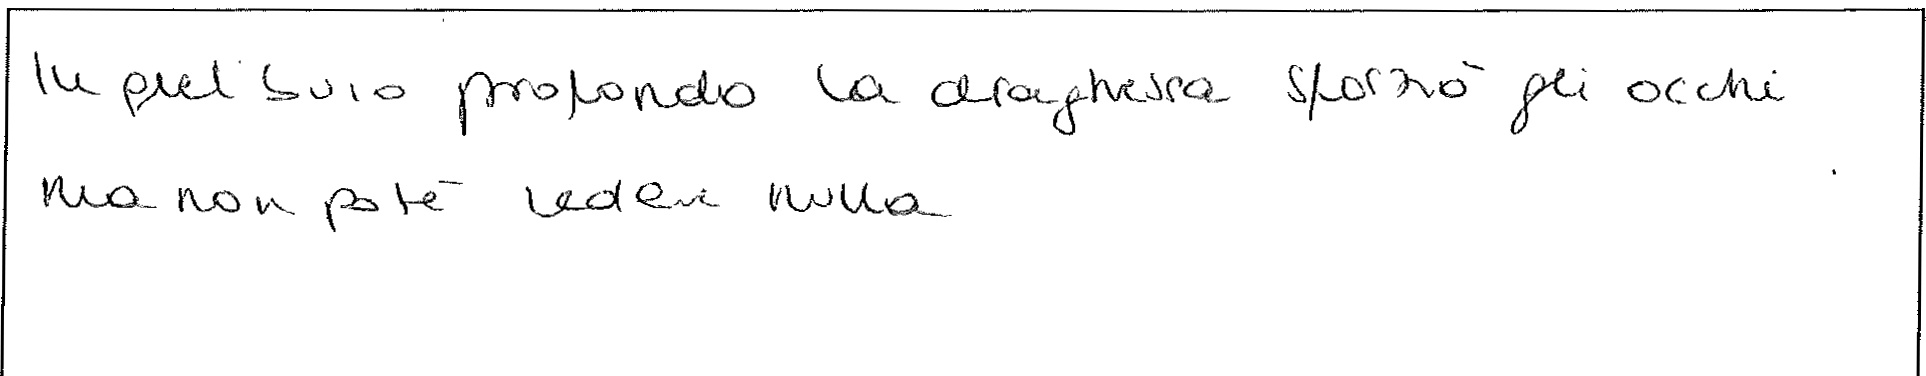 In quel buio profondo la draghessa sforzò gli occhi
ma non potē vedere nulla